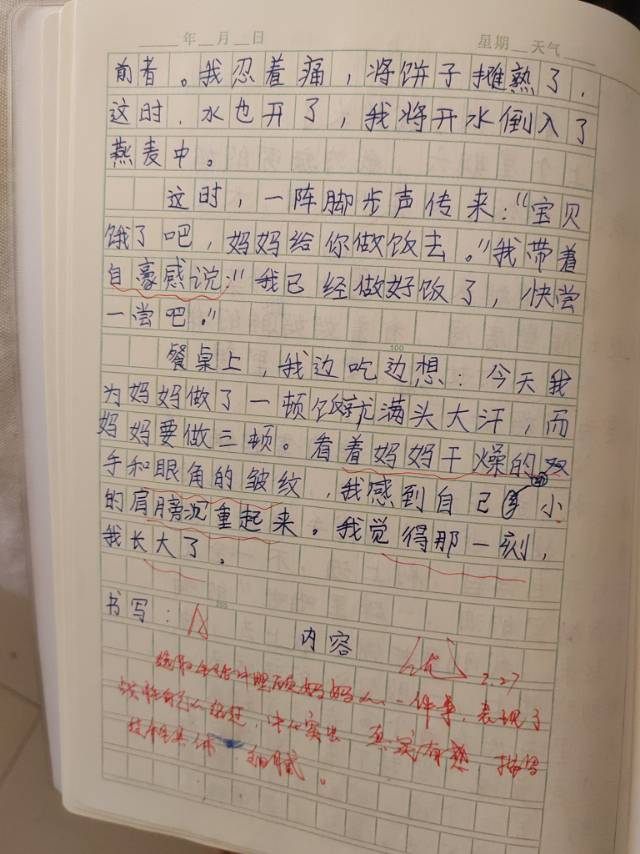 年 月 日 星期 天气
前者。我忍着痛，将饼子摊熟了，
这时，水也开了，我将开水倒入了
燕麦中。
这时，一阵脚步声传来：“宝贝
饿了吧，妈妈给你做饭去。”我带着
自豪感说：“我已经做好饭了，快尝
一尝吧。”
餐桌上，我边吃边想：今天我
为妈妈做了一顿饭就满头大汗，而
妈妈要做三顿。看着妈妈干燥的双
手和眼角的皱纹，我感到自己 小
的肩膀沉重起来。我觉得那一刻，
我长大了。
书写：A
内容 优 2.27
妈妈 一件事，表现了
真实有趣 描写
细腻。